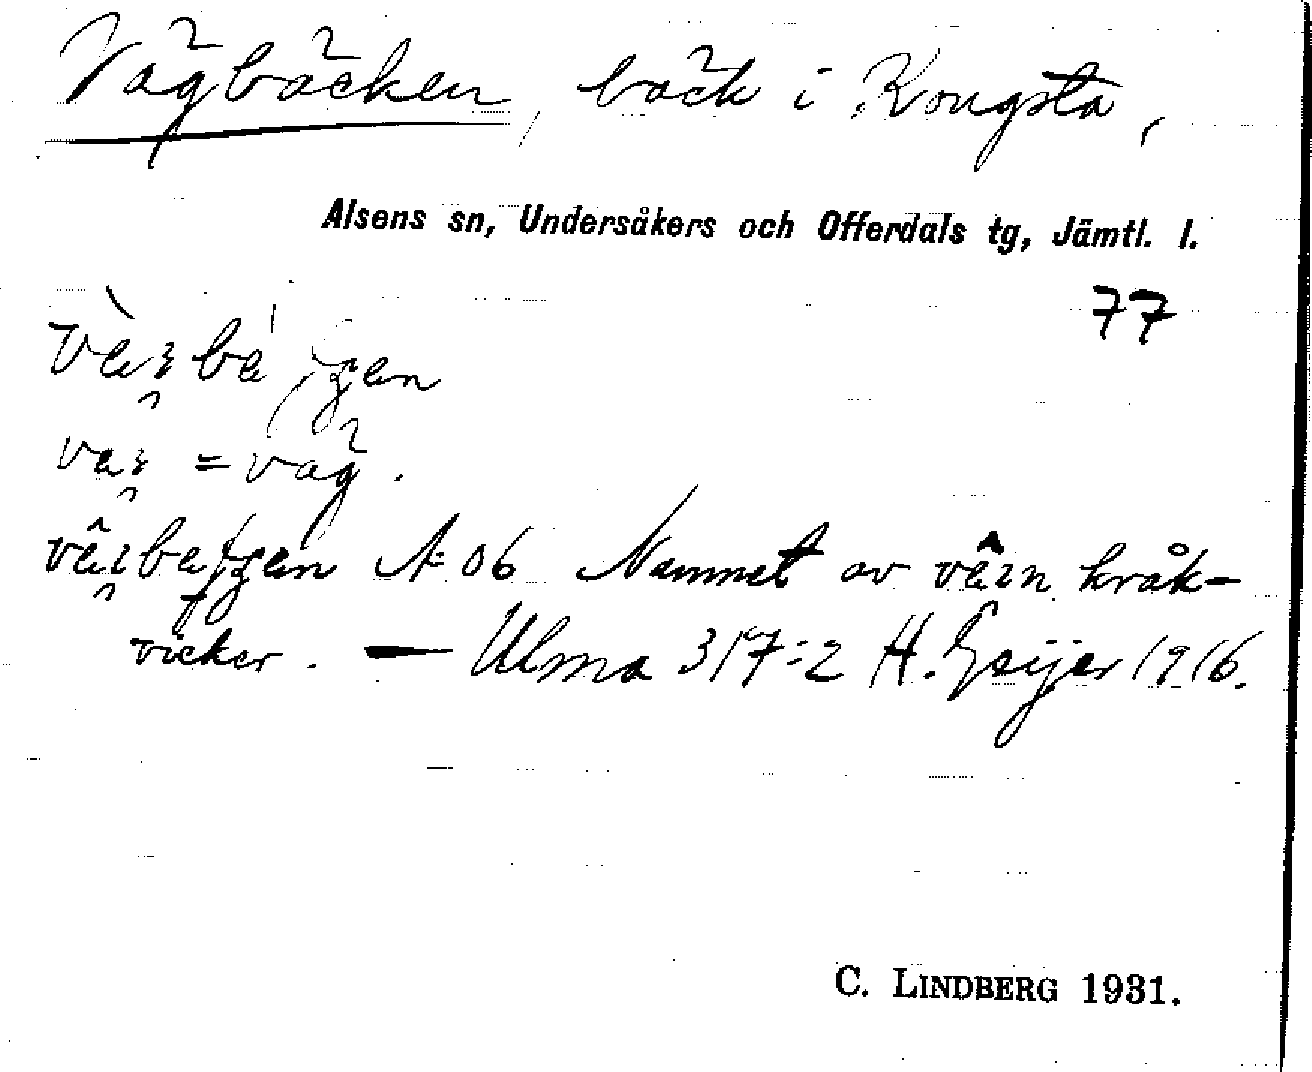 Vägbäcken, bäck i Kougsta,
Alsens sn, Undersåkers och Offerdals tg, Jämtl. l.
77
= väg.
06 Namnet av kråk-
vicker. — Ulma 317:2 H. Geijer 1916.
C. LINDBERG 1931.